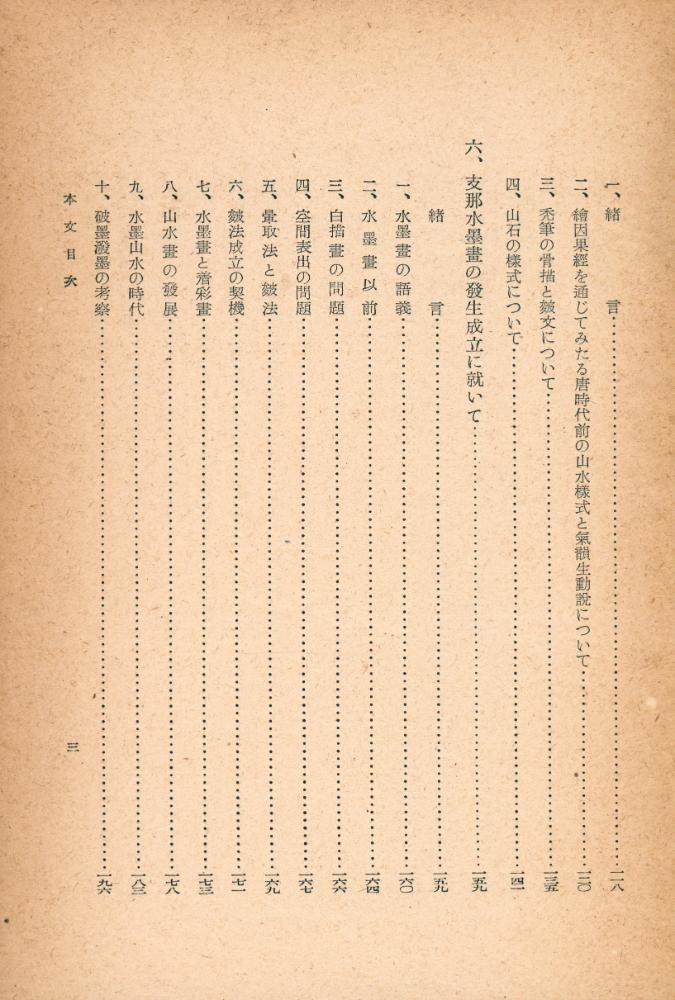 一、緒言……一一八
二、繪因果經を通じてみたる唐時代前の山水樣式と氣韻生動說について……一二〇
三、禿筆の骨描と皴文について……一三五
四、山石の樣式について……一四一
六、支那水墨畫の發生成立に就いて……一五九
緒言……一五九
一、水墨畫の語義……一六〇
二、水墨畫以前……一六四
三、白描畫の問題……一六六
四、空間表出の問題……一六七
五、暈取法と皴法……一六九
六、皴法成立の契機……一七一
七、水墨畫と着彩畫……一七三
八、山水畫の發展……一七八
九、水墨山水の時代……一八三
十、破墨潑墨の考察……一九六
本文目次
三